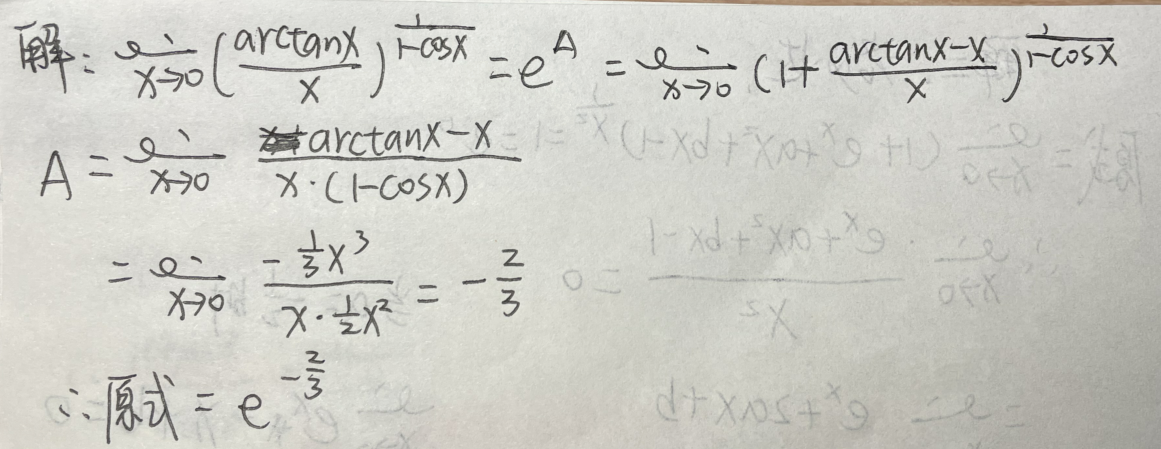 解: lim x→0 (arctanx/x)^(1/(1-cosx)) = e^A = lim x→0 (1+ (arctanx-x)/x)^(1/(1-cosx))
A = lim x→0 (arctanx-x)/(x·(1-cosx))
= lim x→0 (-1/3 x^3)/(x·1/2 x^2) = -2/3
∴原式 = e^(-2/3)